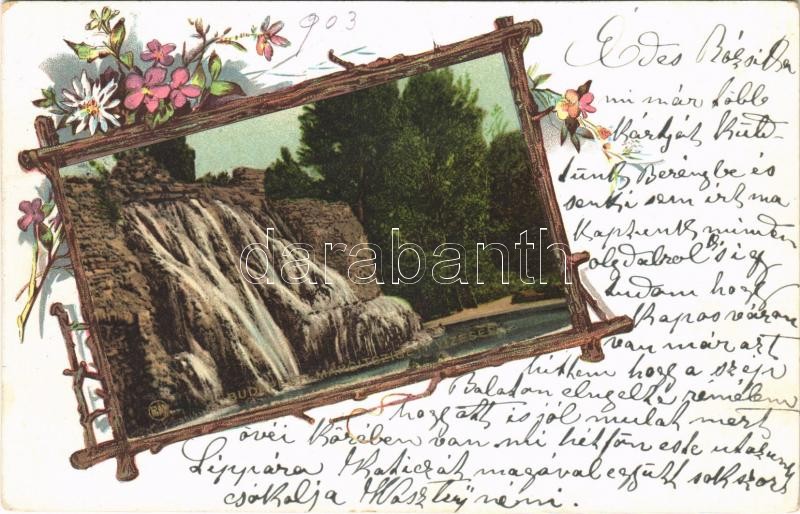 903
Édes Rózsika
mi már több
kártját küld-
tünk Berénybe és
senki sem irt ma
kaptunk minden
oldalrol s igy
tudom hogy
Kaposváron
van már azt
hittem hogy a szép
Balaton elnyelte remélem
hogy ott is jól mulat mert
övéi körében van mi hétfőn este utazunk
Lippára Katiczát magával együtt sokszor
csókolja néni.
darabanth
BUDAPEST MARGITSZIGETI VIZESÉS